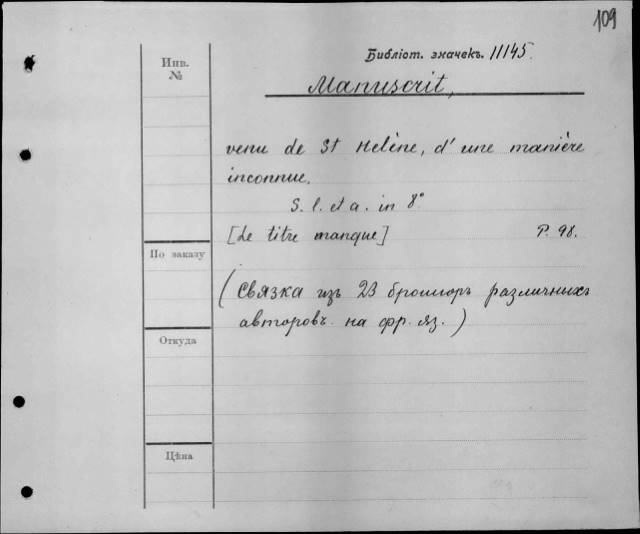 109
Библіот. значекъ. 11145.
Инв.
№
Manuscrit,
venu de St Helène, d'une manière
inconnue.
S. l. et a. in 8°
[Le titre manque] P. 98.
По заказу
(Связка изъ 23 брошюръ различныхъ
авторовъ на фр. яз.)
Откуда
Цѣна